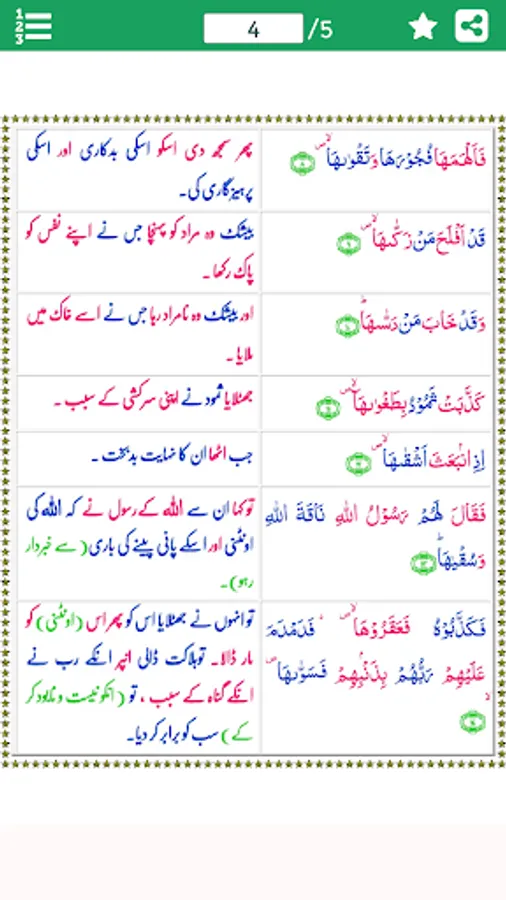 1
2
3
4 /5
فَاَلْهَمَهَا فُجُوْرَهَا وَتَقْوٰىهَا ۪ۙ ﴿۸﴾
پھر سمجھ دی اسکو اسکی بدکاری اور اسکی
پرہیزگاری کی۔
قَدْ اَفْلَحَ مَنْ زَكّٰىهَا ۪ۙ ﴿۹﴾
بیشک وہ مراد کو پہنچا جس نے اپنے نفس کو
پاک رکھا۔
وَقَدْ خَابَ مَنْ دَسّٰىهَا ؕ ﴿۱۰﴾
اور بیشک وہ نامراد رہا جس نے اسے خاک میں
ملایا ۔
كَذَّبَتْ ثَمُوْدُ بِطَغْوٰىهَاۤ ۪ۙ ﴿۱۱﴾
جھٹلایا ثمود نے اپنی سرکشی کے سبب ۔
اِذِ انْۢبَعَثَ اَشْقٰىهَا ۪ۙ ﴿۱۲﴾
جب اٹھا ان کا نہایت بدبخت ۔
فَقَالَ لَهُمْ رَسُوْلُ اللّٰهِ نَاقَةَ اللّٰهِ
وَسُقْيٰهَا ؕ ﴿۱۳﴾
تو کہا ان سے اللہ کے رسول نے کہ اللہ کی
اونٹنی اور اسکے پانی پینے کی باری (سے خبردار
رہو)۔
فَكَذَّبُوْهُ فَعَقَرُوْهَا ۪ۙ فَدَمْدَمَ
عَلَيْهِمْ رَبُّهُمْ بِذَنْۢبِهِمْ فَسَوّٰىهَا ۪ۙ
﴿۱۴﴾
تو انہوں نے جھٹلایا اس کو پھر اس (اونٹنی) کو
مار ڈالا۔ تو ہلاکت ڈالی انپر انکے رب نے
انکے گناہ کے سبب ، تو (انکو نیست و نابود کر
کے) سب کو برابر کر دیا۔